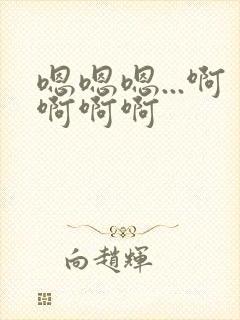 嗯嗯嗯...啊
啊啊啊
向趙輝